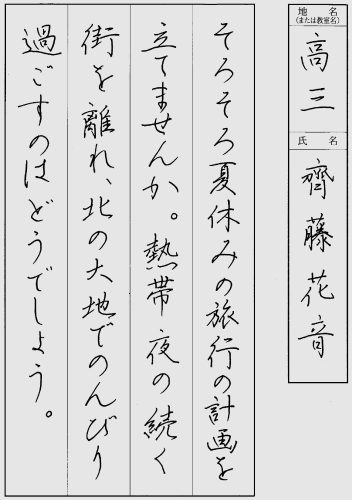 地名
(または教室名)
高三
氏名
齊藤花音
そろそろ夏休みの旅行の計画を
立てませんか。熱帯夜の続く
街を離れ、北の大地でのんびり
過ごすのはどうでしょう。